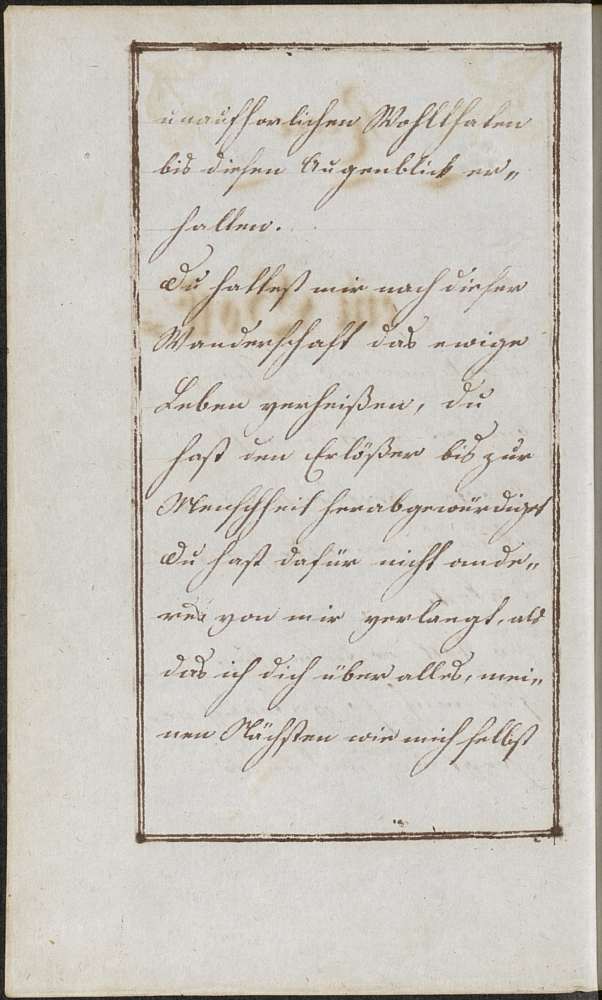 unaufhorlichen Wohlthaten
bis diesen Augenblick er„
halten.
Du hattest mir nach dieser
Wanderschaft das ewige
Leben verheißen, du
hast den Erlößer bis zur
Menschheit herabgewürdiget
Du hast dafür nicht ande„
res von mir verlangt, als
das ich dich über alles, mei„
nen Nächsten wie mich selbst